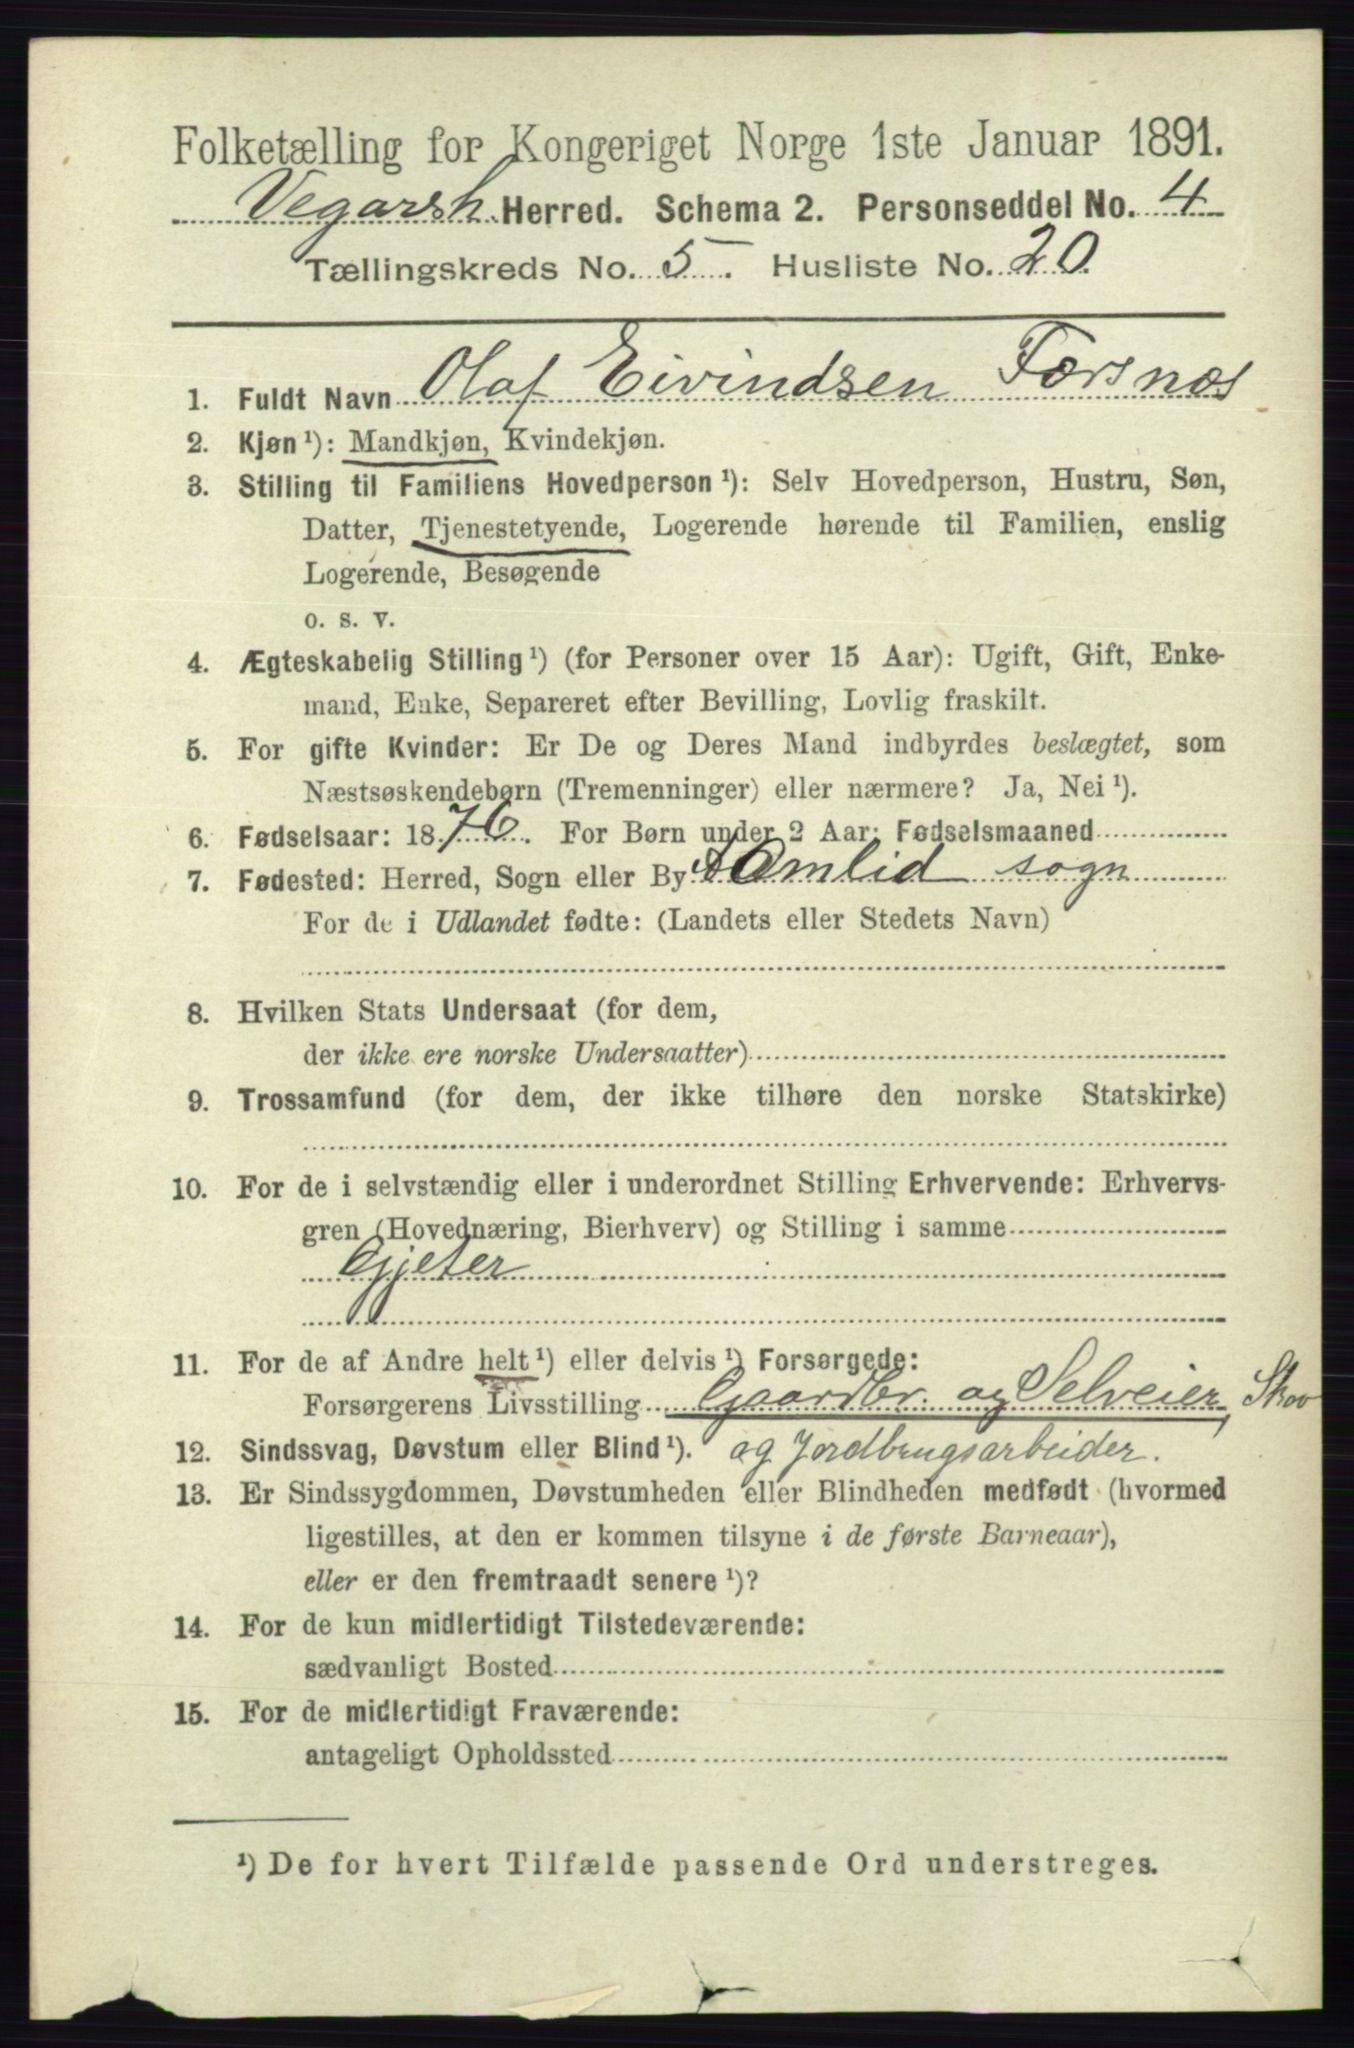 Folketælling for Kongeriget Norge 1ste Januar 1891.
Vegarsh. Herred. Schema 2. Personseddel No. 4
Tællingskreds No. 5. Husliste No. 20.
1. Fuldt Navn Olaf Eivindsen Førsnæs
2. Kjøn ¹): Mandkjøn, Kvindekjøn.
3. Stilling til Familiens Hovedperson ¹): Selv Hovedperson, Hustru, Søn,
Datter, Tjenestetyende, Logerende hørende til Familien, enslig
Logerende, Besøgende
o. s. v.
4. Ægteskabelig Stilling ¹) (for Personer over 15 Aar): Ugift, Gift, Enke-
mand, Enke, Separeret efter Bevilling, Lovlig fraskilt.
5. For gifte Kvinder: Er De og Deres Mand indbyrdes beslægtet, som
Næstsøskendebørn (Tremenninger) eller nærmere? Ja, Nei ¹).
6. Fødselsaar: 1876. For Børn under 2 Aar: Fødselsmaaned
7. Fødested: Herred, Sogn eller By Aamlid sogn
For de i Udlandet fødte: (Landets eller Stedets Navn)
8. Hvilken Stats Undersaat (for dem,
der ikke ere norske Undersaatter)
9. Trossamfund (for dem, der ikke tilhøre den norske Statskirke)
10. For de i selvstændig eller i underordnet Stilling Erhvervende: Erhvervs-
gren (Hovednæring, Bierhverv) og Stilling i samme
Gjeter
11. For de af Andre helt ¹) eller delvis ¹) Forsørgede:
Forsørgerens Livsstilling Gaardbr. og Selveier, Skov
12. Sindssvag, Døvstum eller Blind ¹). og Jordbrugsarbeider.
13. Er Sindssygdommen, Døvstumheden eller Blindheden medfødt (hvormed
ligestilles, at den er kommen tilsyne i de første Barneaar),
eller er den fremtraadt senere ¹)?
14. For de kun midlertidigt Tilstedeværende:
sædvanligt Bosted
15. For de midlertidigt Fraværende:
antageligt Opholdssted
¹) De for hvert Tilfælde passende Ord understreges.